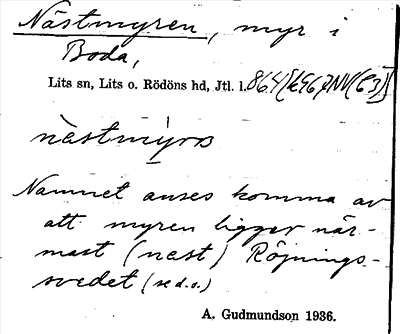 Nästmyren, myr i
Boda,
Lits sn, Lits o. Rödöns hd, Jtl. l.
næstmýrɷ
Namnet anses komma av
att myren ligger när-
mast (næst) Röjnings-
svedet (se d.o.)
A. Gudmundson 1936.